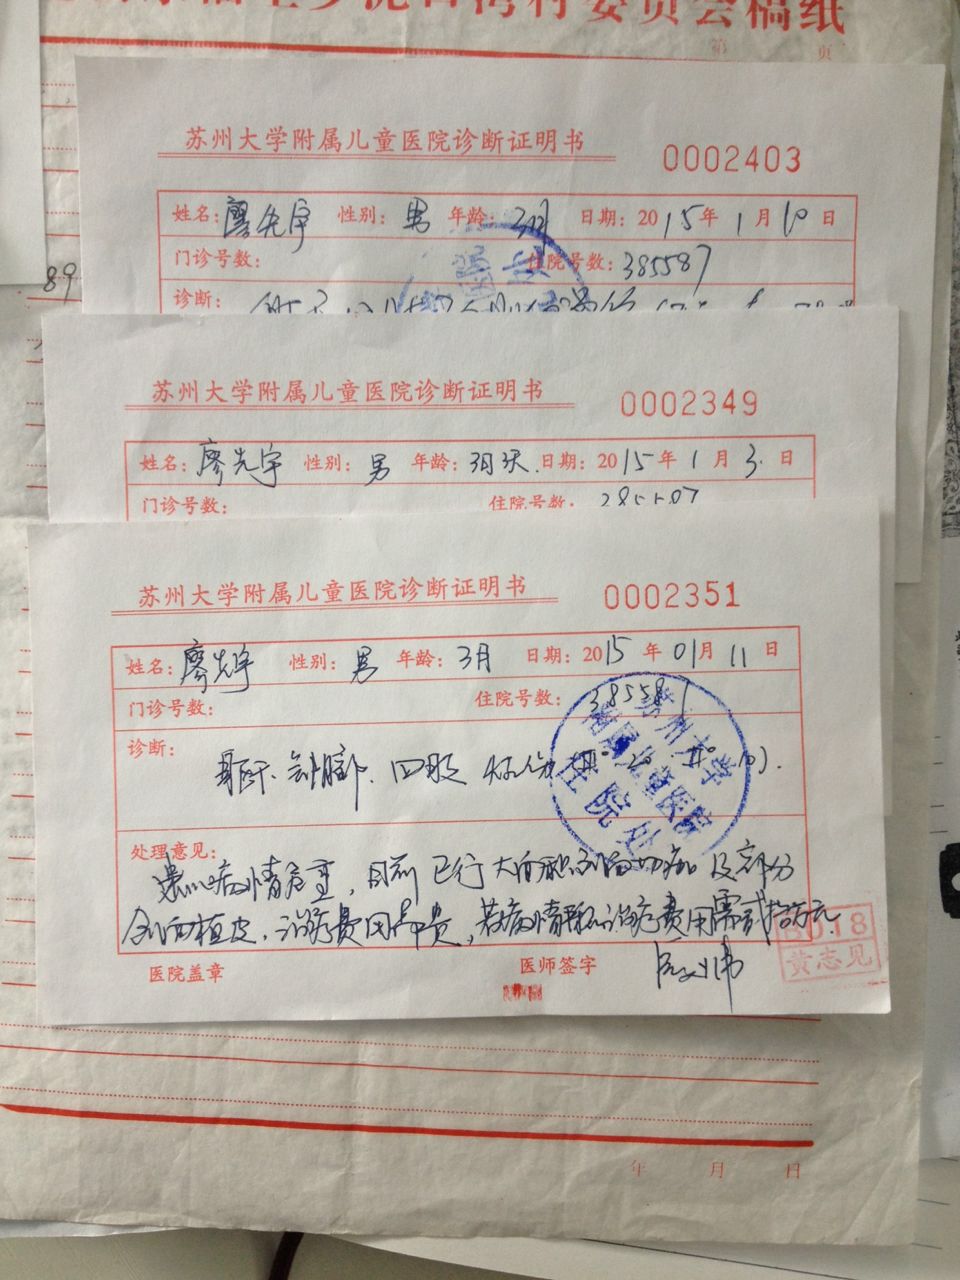 村委员会稿纸
第 页
苏州大学附属儿童医院诊断证明书 0002403
姓名: 廖先宇 性别: 男 年龄: 3月 日期: 2015年1月10日
门诊号数: 住院号数: 385587
诊断:
89
苏州大学附属儿童医院诊断证明书 0002349
姓名: 廖先宇 性别: 男 年龄: 3月 日期: 2015年1月3日
门诊号数: 住院号数:
苏州大学附属儿童医院诊断证明书 0002351
姓名: 廖先宇 性别: 男 年龄: 3月 日期: 2015年01月11日
门诊号数: 住院号数: 385587
苏州大学
附属儿童医院
住院处
诊断:
躯干、 四肢
处理意见:
患儿病情危重,目前已行大面积 及部分
植皮,治疗费用昂贵,若病情 治疗费用需贰拾万元
医院盖章 医师签字
黄志见
年 月 日